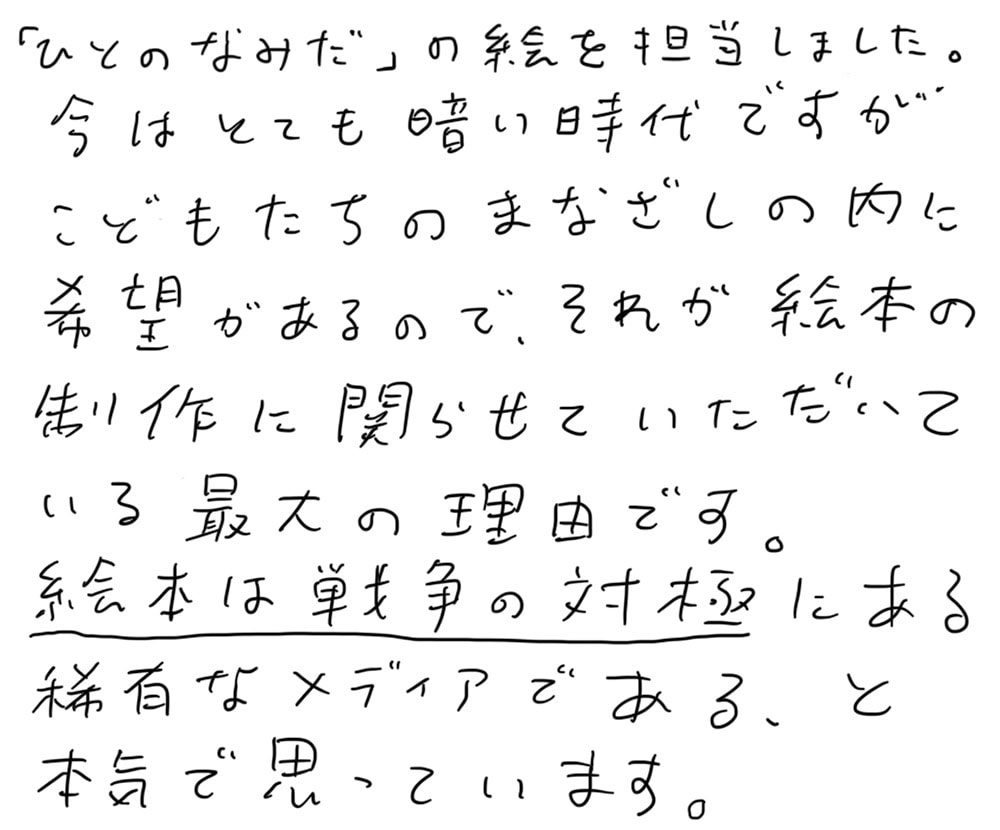 「ひとのなみだ」の絵を担当しました。
今はとても暗い時代ですが
こどもたちのまなざしの内に
希望があるので、それが絵本の
制作に関らせていただいて
いる最大の理由です。
絵本は戦争の対極にある
稀有なメディアである、と
本気で思っています。